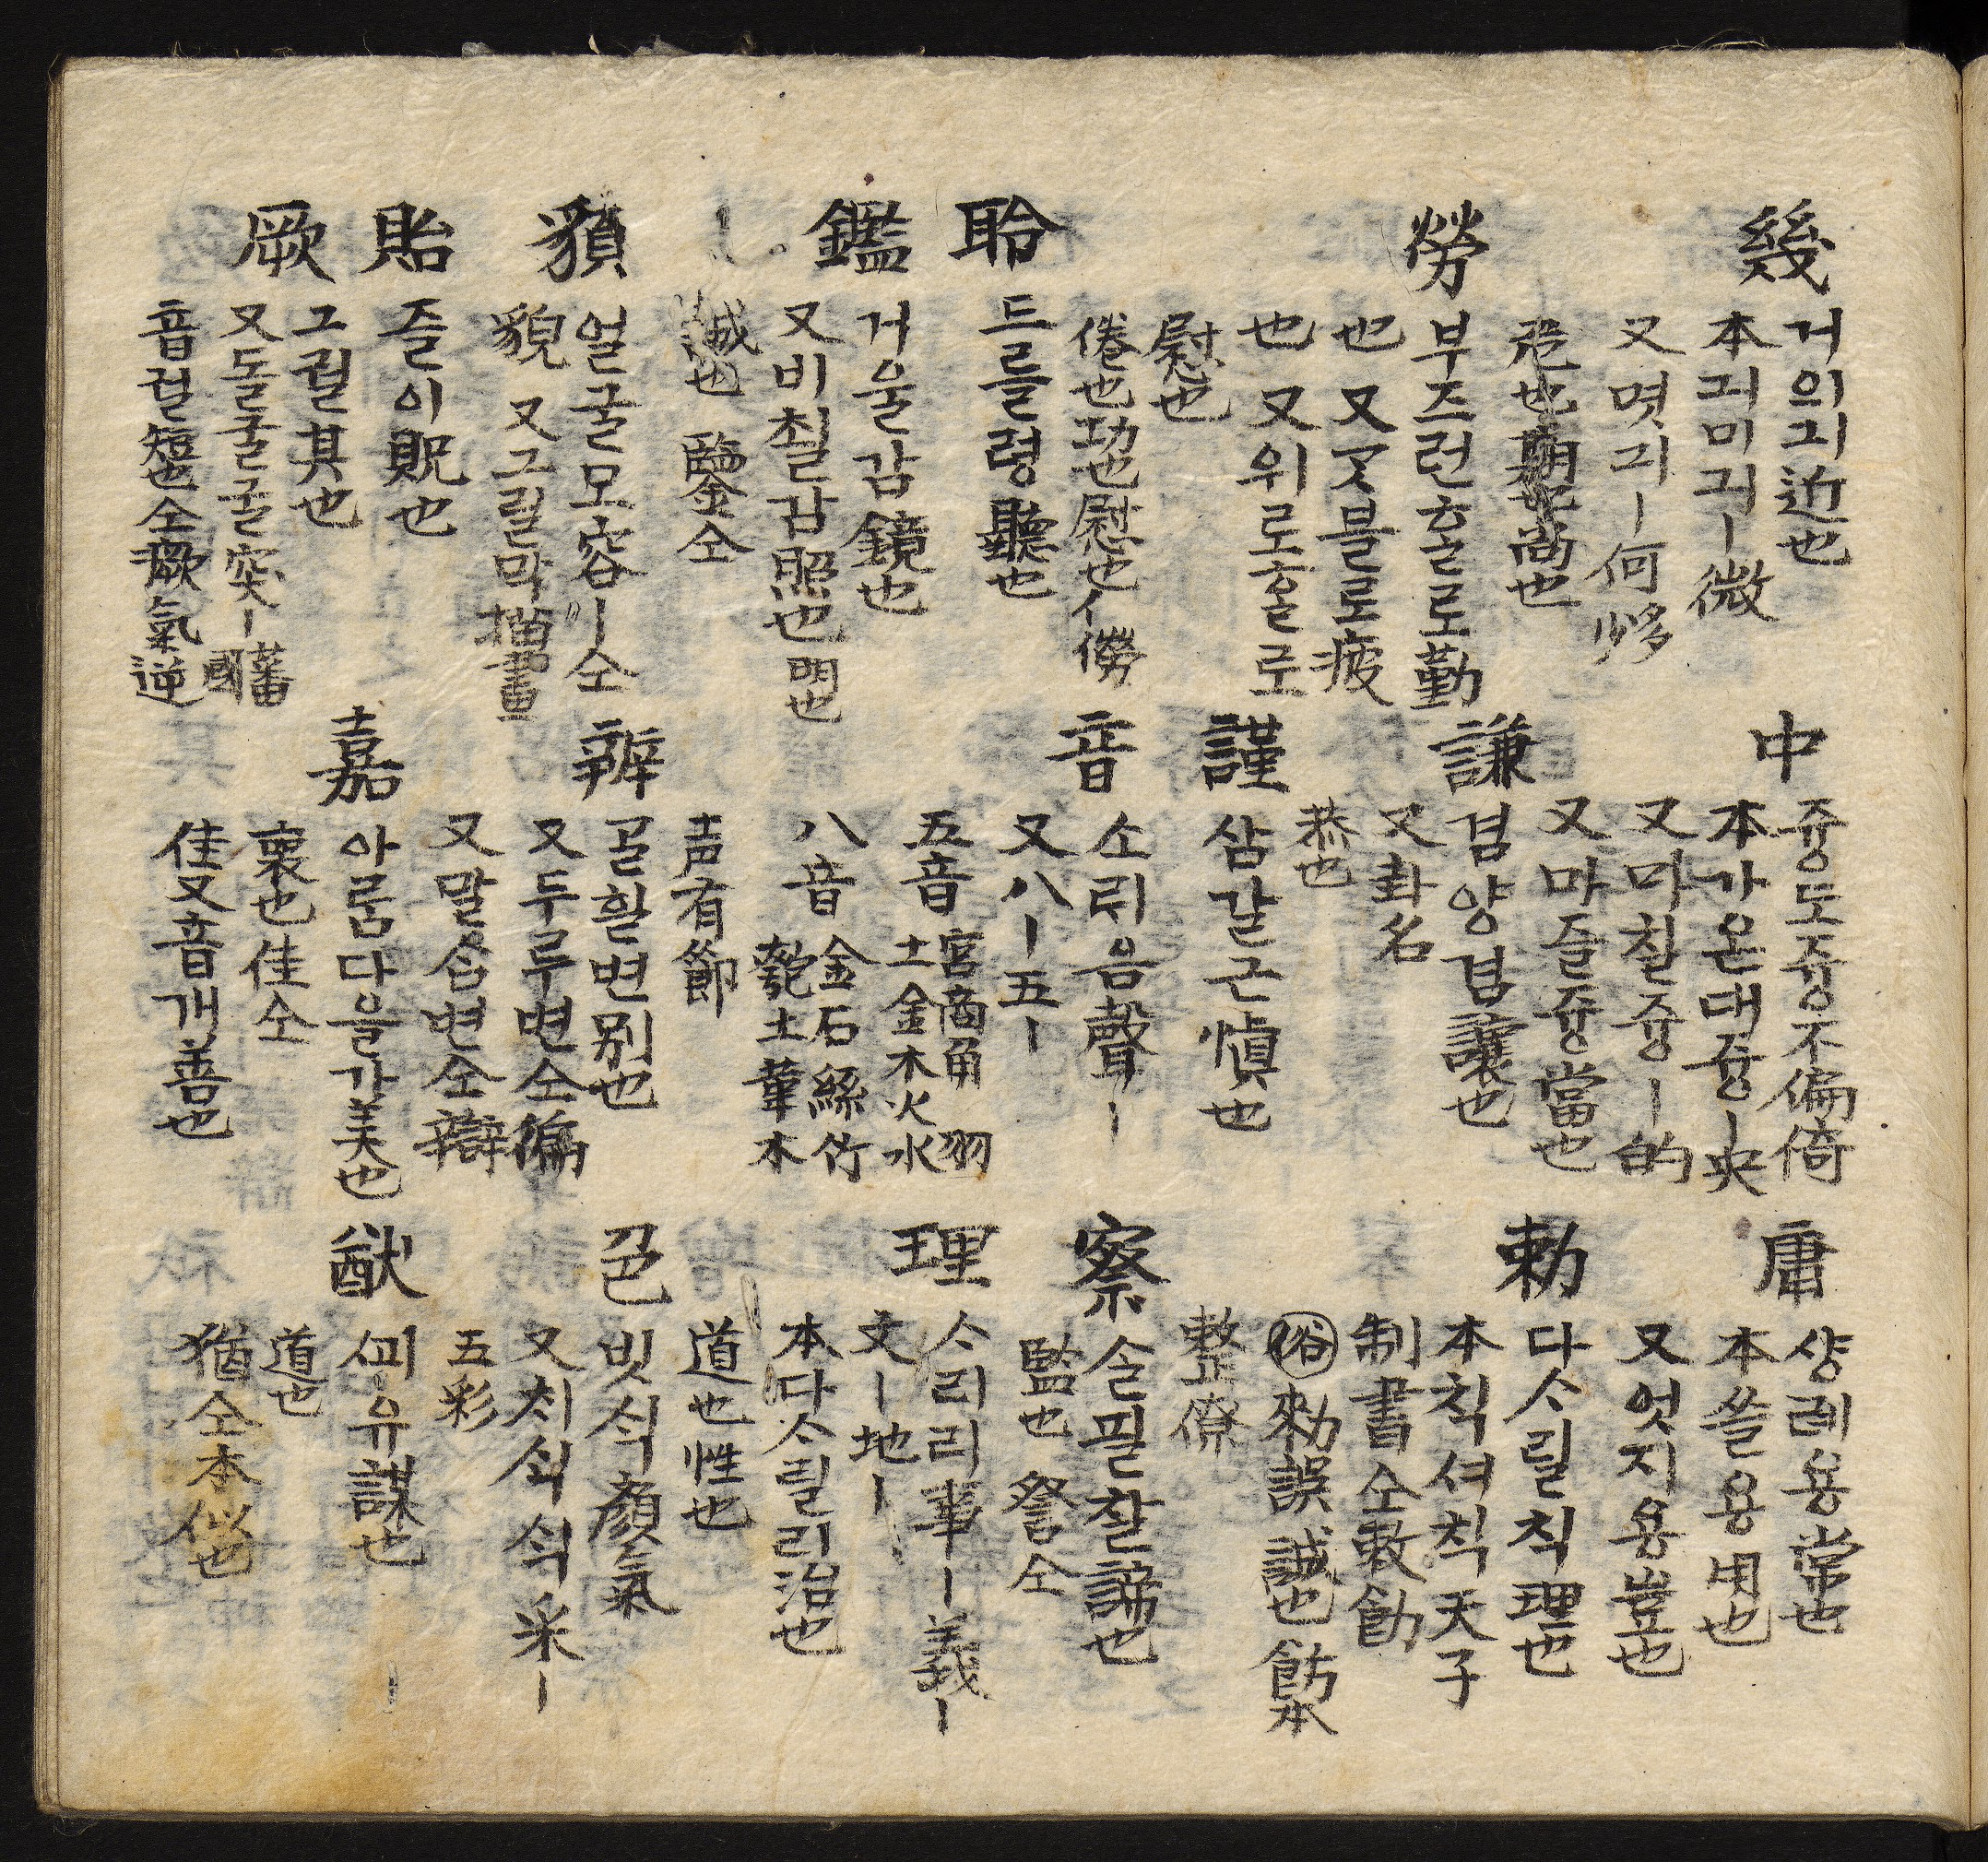 幾
거의긔近也
本긔미긔ㅣ微
又몃긔ㅣ何
也尙也
中
즁도즁不偏倚
本가온대즁ㅣ央
又마칠즁ㅣ的
又마즐즁當也
庸
샹례용常也
本쓸용用也
又엇지용豈也
勞
부즈런홀로勤
也又ᄀᆺ블로疲
也又위로홀로
慰也
倦也功也慰也亻僗
謙
겸양겸讓也
又卦名
恭也
謹
삼갈근愼也
勅
다ᄉᆞ릴칙理也
本칙셔칙天子
制書仝敕飭
俗勑誤誡也飭本
整
聆
드를령聽也
音
소릐음聲ㅣ
又八ㅣ五ㅣ
五音 宮商角 羽
土金木火水
八音 金石絲竹
匏土革木
声有節
察
ᄉᆞᆯ필찰諦也
監也 詧仝
理
ᄉᆞ리리事ㅣ義ㅣ
文ㅣ地ㅣ
本다ᄉᆞ릴리治也
道也性也
鑑
거울감鏡也
又비췰감照也明也
誡也 鑒仝
貌
얼굴모容ㅣ仝
貌 又그릴막描畫
辨
골힐변別也
又두루변仝徧
又말ᄉᆞᆷ변仝辯
色
빗ᄉᆡᆨ顏氣
又치ᄉᆡᆨᄉᆡᆨ采ㅣ
五彩
貽
줄이貺也
厥
그궐其也
又돌굴굴突ㅣ
音궐短也仝瘚氣逆
嘉
아름다을가美也
褒也佳仝
佳又音개善也
猷
ᄭᅬ유謀也
道也
猶仝本似也